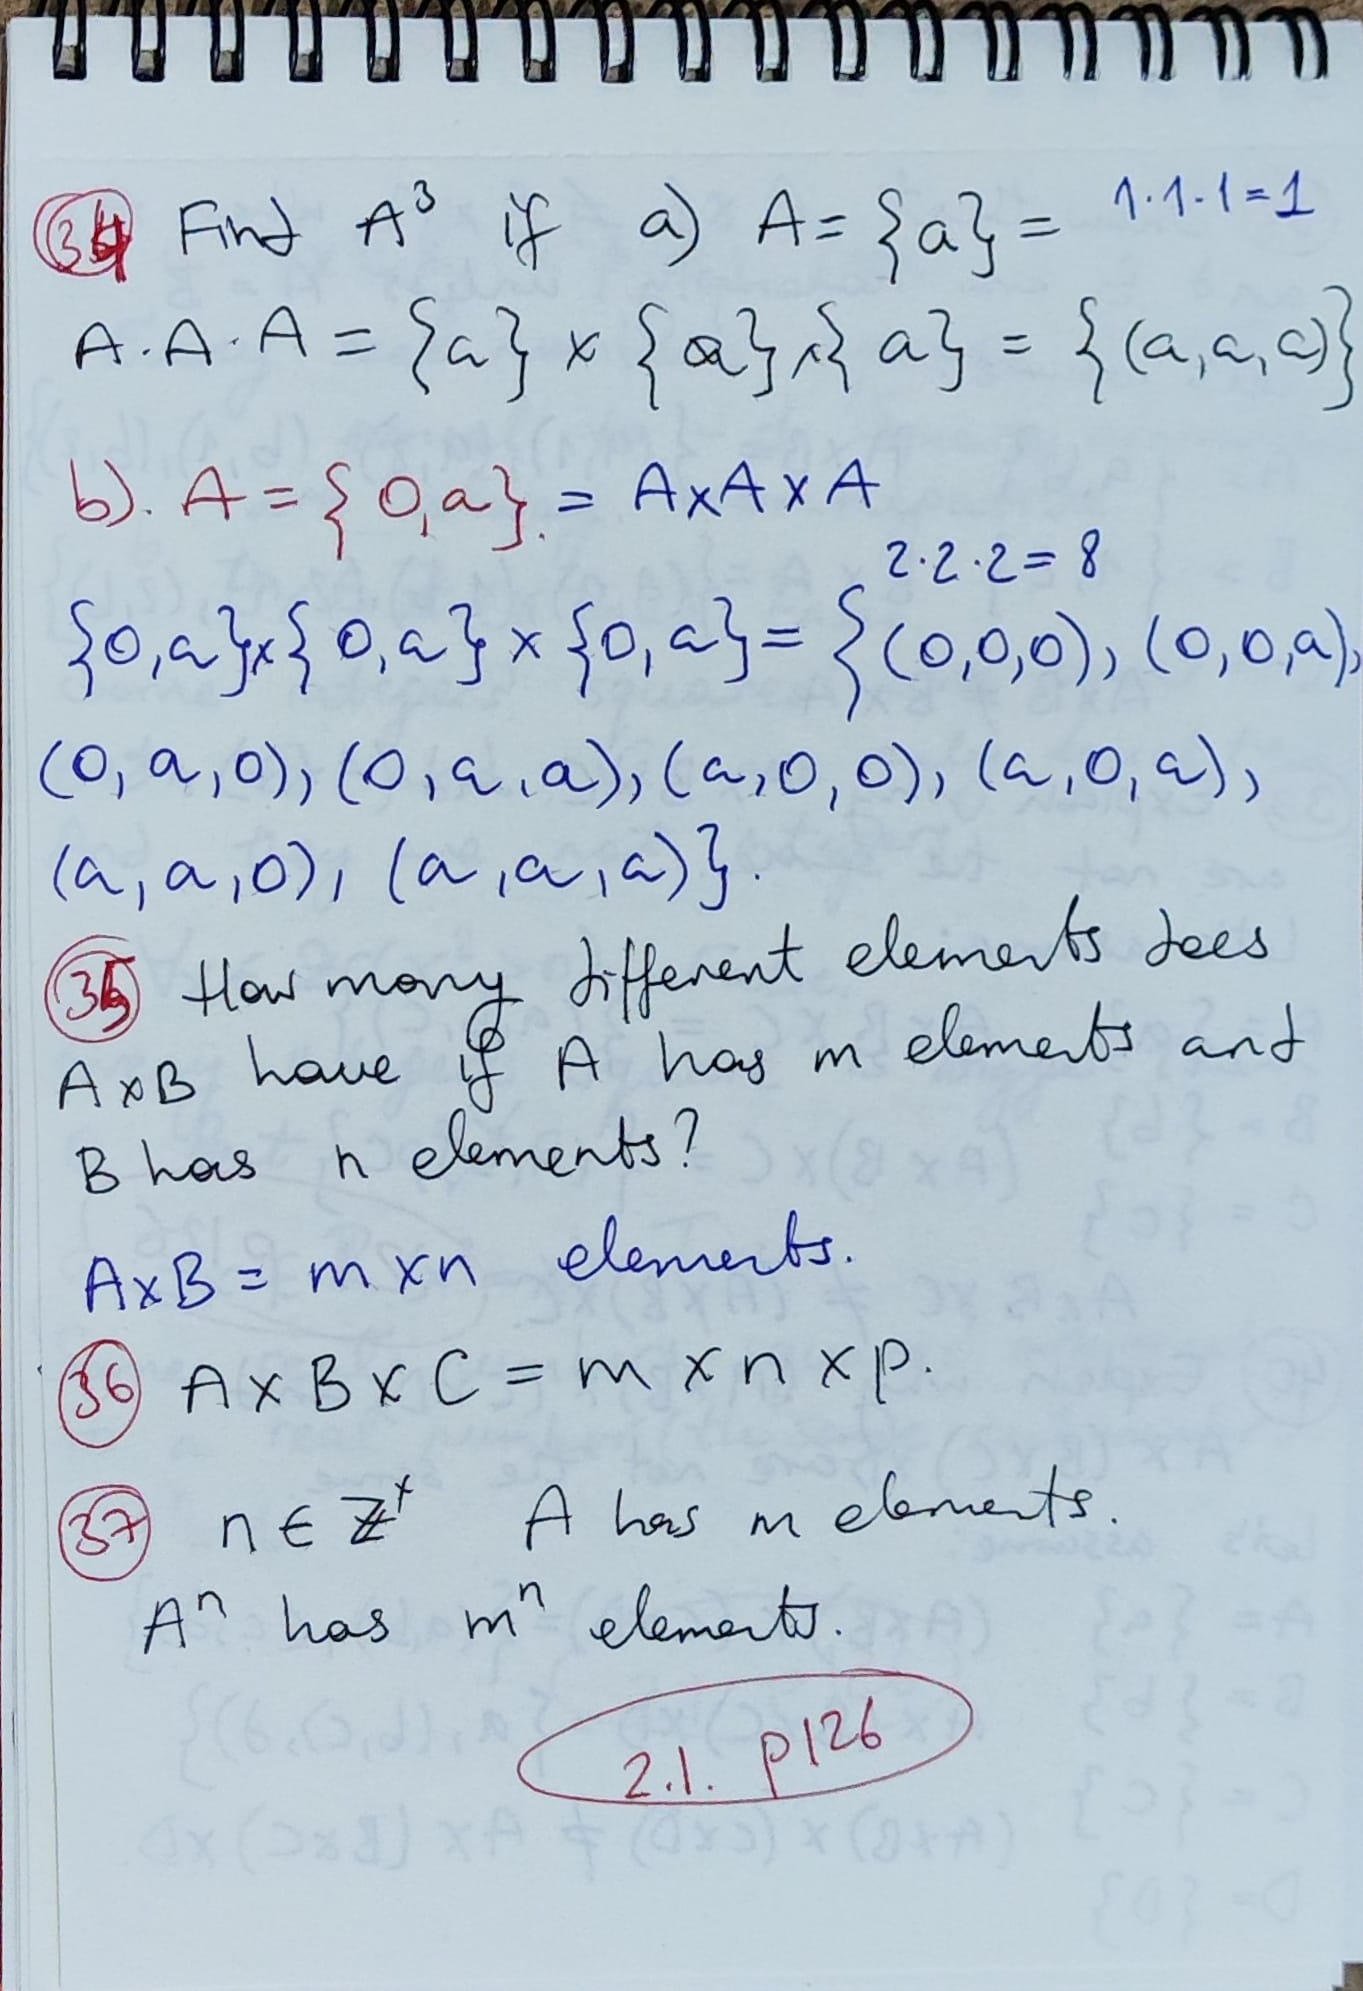 34 Find A³ if a) A = {a} = 1·1·1=1
A·A·A = {a} x {a} x { a} = {(a,a,a)}
b). A = { 0,a}. = AxAxA
2·2·2= 8
{0,a}x{ 0,a} x {0,a}= {(0,0,0), (0,0,a),
(0,a,0), (0,a,a), (a,0,0), (a,0,a),
(a,a,0), (a,a,a)}.
35 How many different elements does
AxB have if A has m elements and
B has n elements?
AxB = m x n elements.
36 A x B x C = m x n x p.
37 n ∈ Z⁺ A has m elements.
Aⁿ has mⁿ elements.
2.1. p126